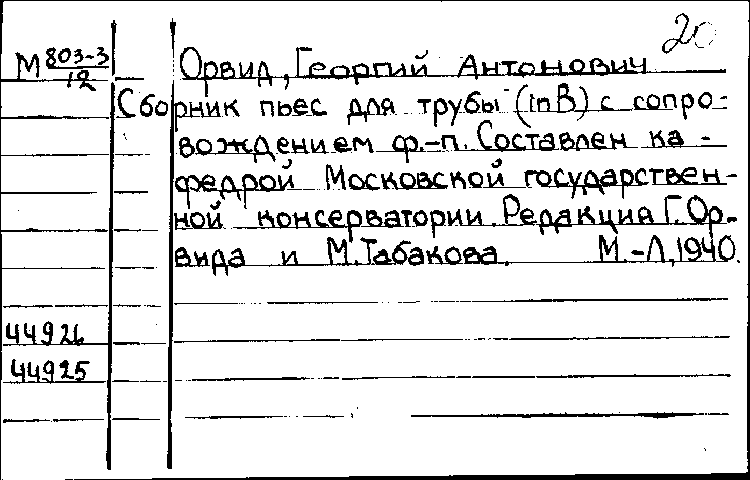 20
М 803-3
12
Орвид, Георгий Антонович
Сборник пьес для трубы (in B) с сопро-
вождением ф.-п. Составлен ка-
федрой Московской государствен-
ной консерватории. Редакция Г. Ор-
вида и М. Табакова. М.-Л, 1940.
44926
44925